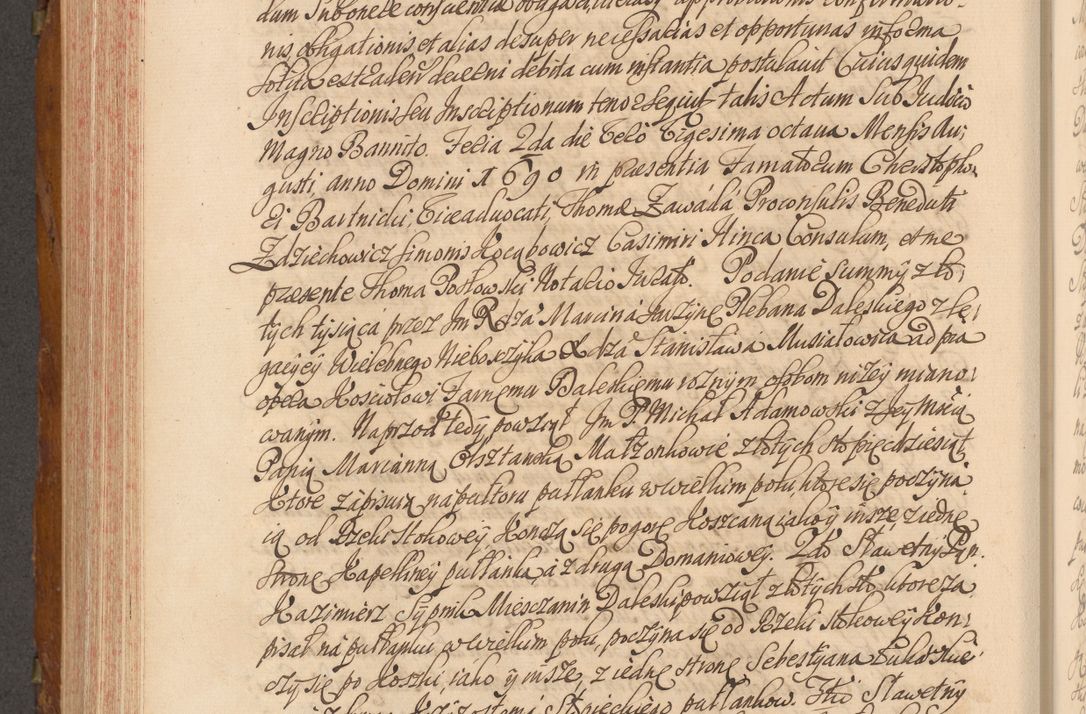 dum Subonere conscientia obligari, literasq approbationis confirmatio-
nis, obligationis, et alias desuper necessarias et opportunas in forma
solita extradi decerni debita cum instantia postulavit Cuiusquidem
Inscriptionis seu Inscriptionum tenor sequit talis Actum Sub Judicio
Magno Bannito. Feria 2da die vero Vigesima octava Mensis Au:
gusti, anno Domini 1690 in praesentia Famatorum Christopho-
ri Bartnicki, Viceadvocati, Thomae Zawada Proconsulis Benedicti
Zdziechowicz Simonis Kocąbowicz Casimiri Hinca Consulum, et me
praesente Thoma Posłowski Notario Jurato. Podanie Summy zło:
tych tysiąca przez Jm Xdza Marcina Plebana Daleskiego z le:
gacyey Wielebnego Nieboszczyka Xdza Stanisława Musiałowica ad pia
opera Kosciołowi Farnemu Daleskiemu roznym osobom nizey miano:
wanym. Naprzod tedy powziął Jm P. Michał Adamowski z Jey Mcią
Panią Marianną Olsztanską Małzonkowie złotych sto pięcdziesiąt
Ktore zapisuią na pułtora pułłanku w wielkim polu, ktore się poczyna:
ią od Rzeki Stokowey Konczą się pogorę Koszcaną iako y insze, z iedne
stronę Kapelliney pułłanka, a z drugą Domaniowey. 2do Sławetny Pan
Kazimierz Sypnik Miesczanin Daleski powziął złotych sto, ktore za
pisał na pułłanku w wielkim polu, poczyna się od Rzeki Stokowey Kon:
czy się po Koszki, iako y insze, z iedne stronę Sebestyana
pułłankow. 3tio Sławetny